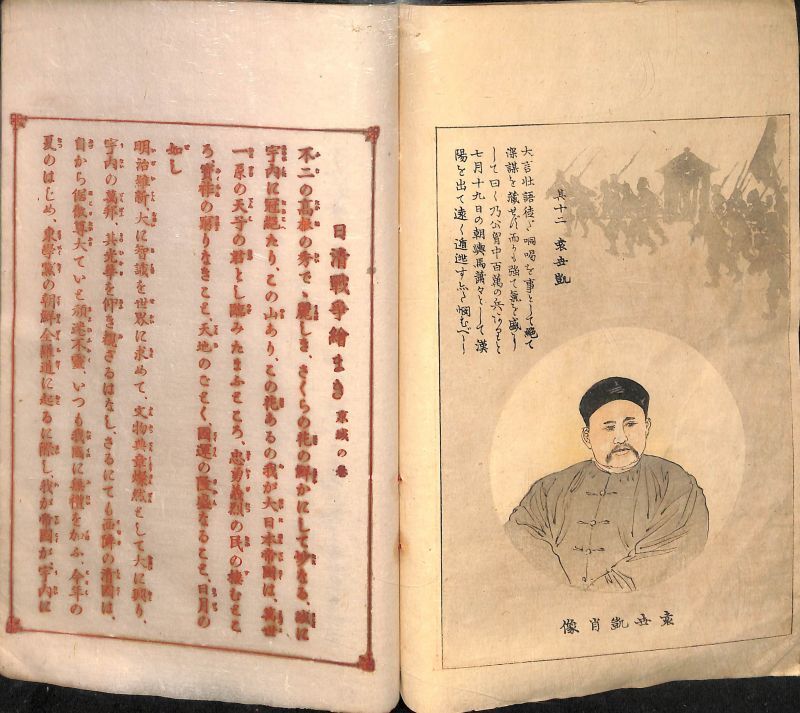 其十二 袁世凱
大言壮語徒に恫喝を事として絶て
深謀を蔵せず而かも強て氣を盛に
して曰く乃公胷中百萬の兵ありと
七月十九日の朝輿馬蕭々として漢
陽を出て遠く遁逃す 憫むべし
袁世凱肖像
日清戰爭繪まき 京城の巻
不二の高根の秀で、麗しき、さくらの花の鮮かにして妙なる、誠に
宇内に冠絶たり、この山あり、この花あるの我が大日本帝國は、萬世
一系の天子の君とし臨みたまふところ、忠勇義烈の民の棲むとこ
ろ、寶祚の限りなきこと、天地のごとく、國運の隆盛なること、日月の
如し
明治維新大に智識を世界に求めて、文物典章燦然として大に興り、
宇内の萬邦、其光華を仰ぎ観ざるはなし、さるにても西隣の清國は、
自から倨傲尊大ていと頑迷不靈、いつも我國に無禮をかふ、今年の
夏のはじめ、東學黨の朝鮮全羅道に起るに際し、我が帝國が宇内に